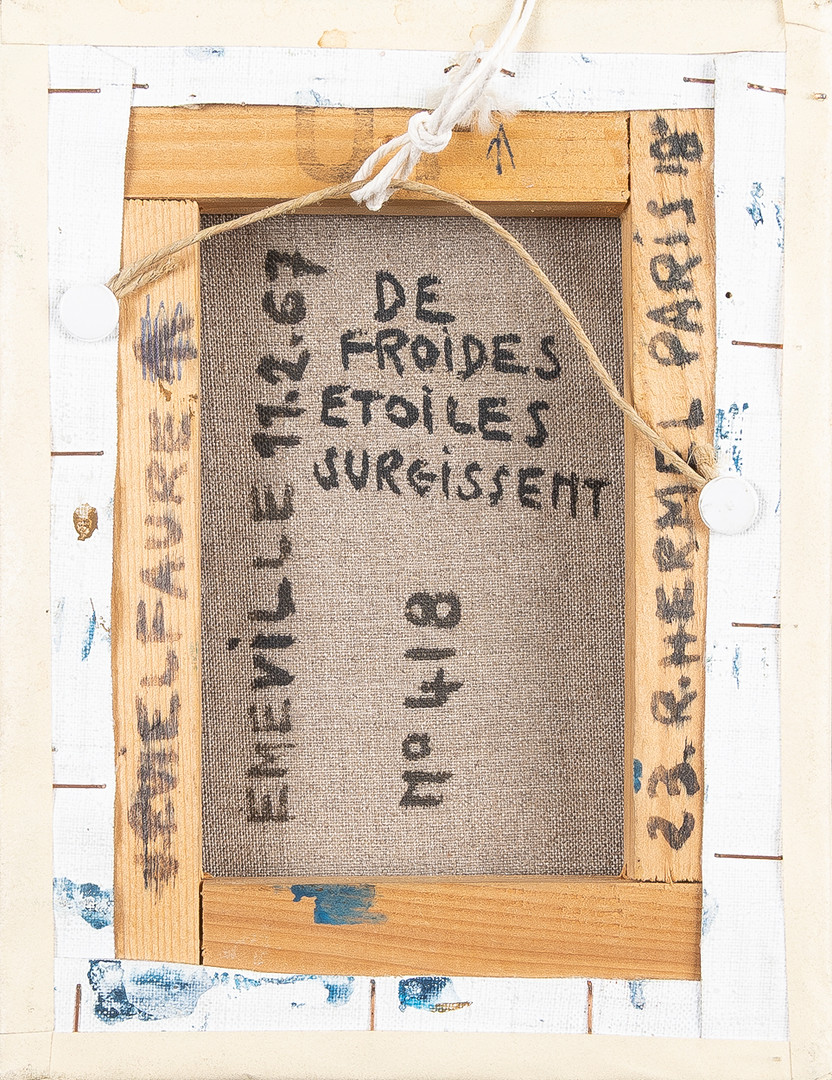 DE
FROIDES
ETOILES
SURGISSENT
Nº 418
EMEVILLE 11.2.67
23. R. HERMEL PARIS 18